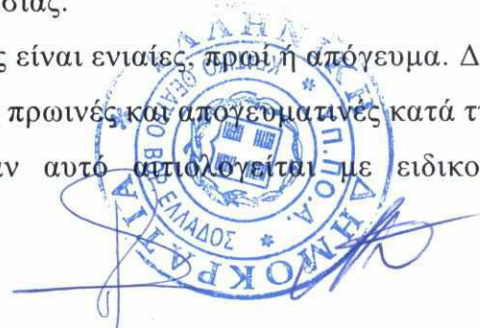 σίας.
ς είναι ενιαίες, πρωί ή απόγευμα. Δ
πρωινές και απογευματινές κατά τ
ν αυτό αιτιολογείται με ειδικο
ΕΛΛΗΝΙΚΗ ΔΗΜΟΚΡΑΤΙΑ
ΘΕΑΤΡΟ ΒΟΡ ΕΛΛΑΔΟΣ
Π.ΠΟ.Α.